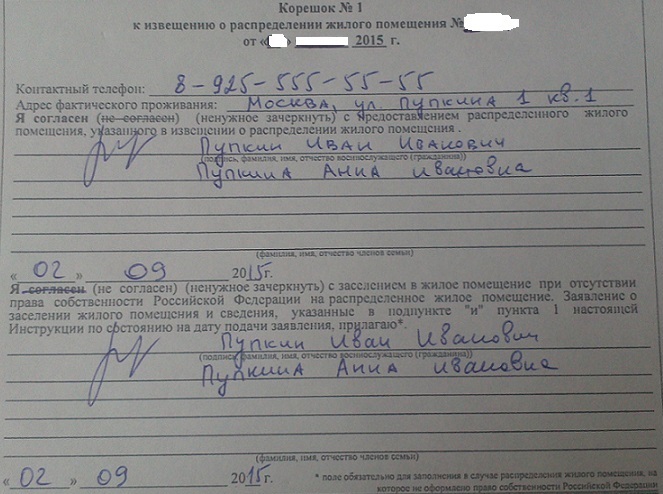 Корешок № 1
к извещению о распределении жилого помещения №
от « » 2015 г.
Контактный телефон: 8-925-555-55-55
Адрес фактического проживания: Москва, ул. Пупкина 1 кв. 1
Я согласен (не согласен) (ненужное зачеркнуть) с предоставлением распределенного жилого
помещения, указанного в извещении о распределении жилого помещения .
Пупкин Иван Иванович
(подпись, фамилия, имя, отчество военнослужащего (гражданина))
Пупкина Анна Ивановна
(фамилия, имя, отчество членов семьи)
« 02 » 09 2015г.
Я согласен (не согласен) (ненужное зачеркнуть) с заселением в жилое помещение при отсутствии
права собственности Российской Федерации на распределенное жилое помещение. Заявление о
заселении жилого помещения и сведения, указанные в подпункте "и" пункта 1 настоящей
Инструкции по состоянию на дату подачи заявления, прилагаю*.
Пупкин Иван Иванович
(подпись, фамилия, имя, отчество военнослужащего (гражданина))
Пупкина Анна Ивановна
(фамилия, имя, отчество членов семьи)
« 02 » 09 2015г.
* поле обязательно для заполнения в случае распределения жилого помещения, на
которое не оформлено право собственности Российской Федерации